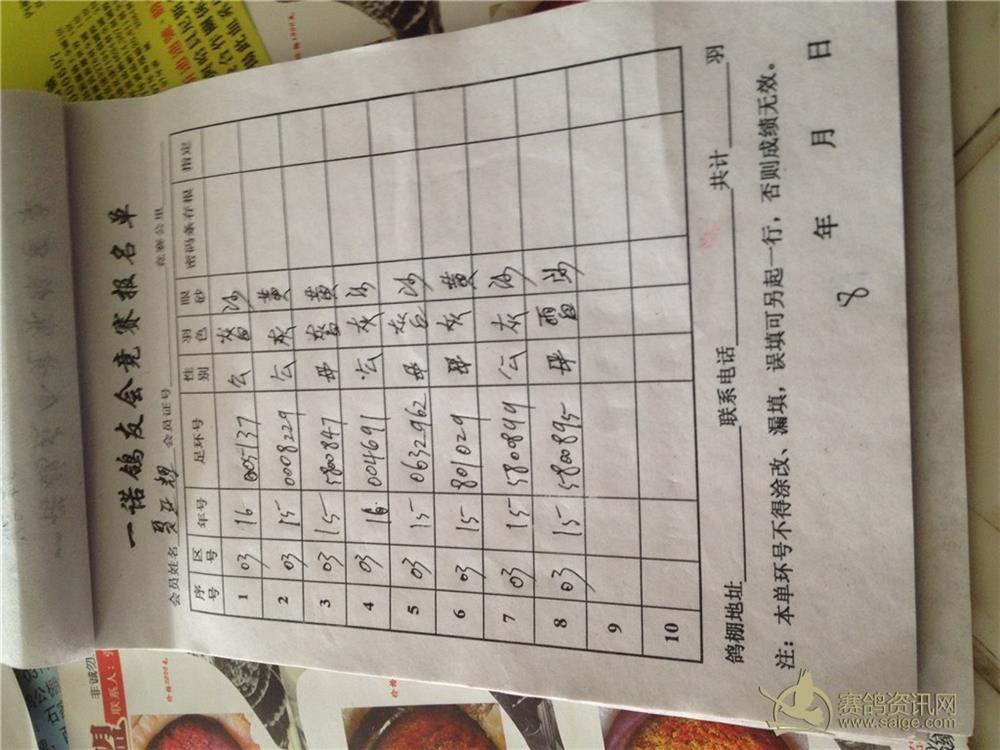 一诺鸽友会竞赛报名单
会员姓名 夏亚辉 会员证号 竞赛公里
序号 区号 年号 足环号 性别 羽色 眼砂 密码条存根 指定
1 03 16 005137 公 沙
2 03 15 0008229 公 灰 黄
3 03 15 5800847 母 黄
4 03 16 004691 公 灰 沙
5 03 15 0632962 母 沙
6 03 15 801029 母 灰 黄
7 03 15 580899 公 灰 沙
8 03 15 5800895 母 沙
9
10
鸽棚地址 联系电话 共计 羽
注：本单环号不得涂改、漏填，误填可另起一行，否则成绩无效。
年 月 日
8
非诚勿
联系人：
赛鸽资讯网
www.saige.com